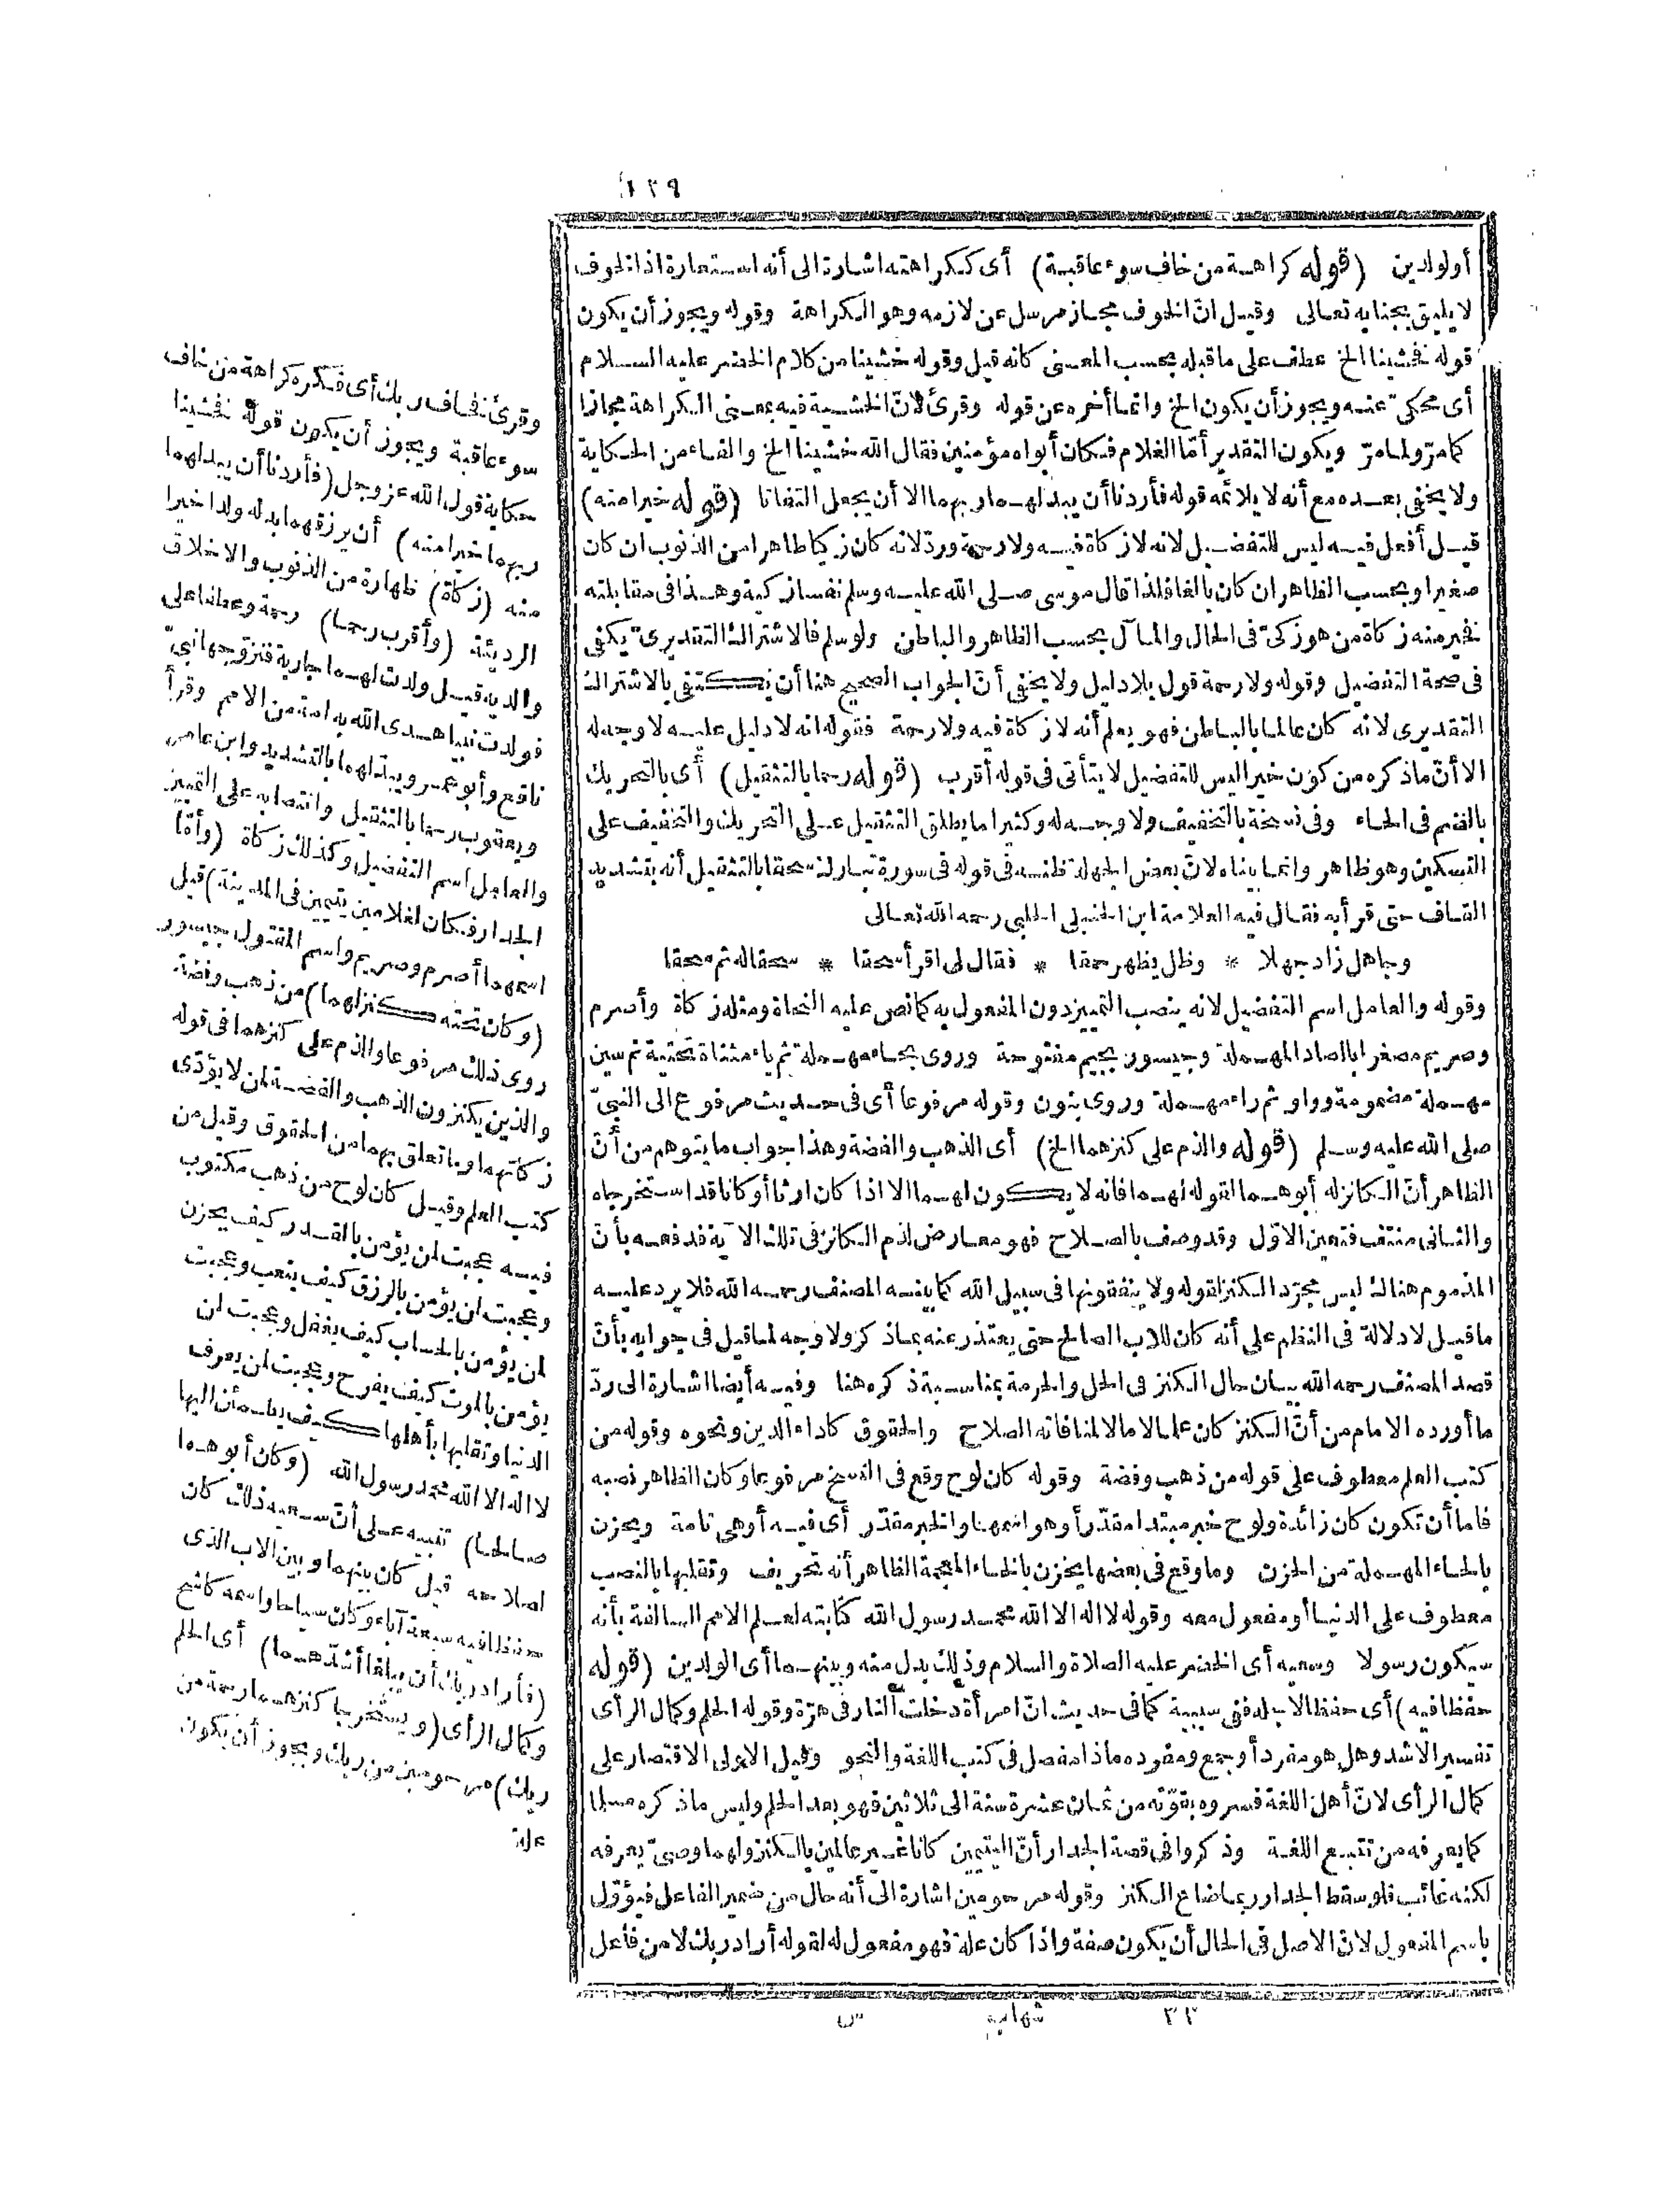 ١٢٩
أولولدين (قوله كراهة من خاف سوء عاقبة) أى ككراهته اشارة الى أنه استعارة اذ الخوف
لا يليق بجنابه تعالى وقيل انّ الخوف مجاز مرسل عن لازمه وهو الكراهة وقوله ويجوز أن يكون
قوله فخشينا الخ عطف على ما قبله بحسب المعنى كانه قيل وقوله خشينا من كلام الخضر عليه السلام
أى محكىّ عنه ويجوز أن يكون الخ وانما أخره عن قوله وقرئ لانّ الخشية فيه بمعنى الكراهة مجازا
كما مرّ ولما مرّ ويكون التقدير أمّا الغلام فكان أبواه مؤمنين فقال الله خشينا الخ والفاء من الحكاية
ولا يخفى بعده مع أنه لا يلائمه قوله فأردنا أن يبدلهما ربهما الا أن يجعل التفاتا (قوله خيرا منه)
قيل أفعل فيه ليس للتفضيل لانه لا زكاة فيه ولا رحمة وردّ لانه كان زكيا طاهرا من الذنوب ان كان
صغيرا وبحسب الظاهر ان كان بالغا فلذا قال موسى صلى الله عليه وسلم نفسا زكية وهذا فى مقابلته
فخير منه زكاة من هو زكىّ فى الحال والمآل بحسب الظاهر والباطن ولو سلم فالاشتراك التقديرىّ يكفى
فى صحة التفضيل وقوله ولا رحمة قول بلا دليل ولا يخفى أنّ الجواب الصحيح هنا أن يكتفى بالاشتراك
التقديرى لانه كان عالما بالباطن فهو يعلم أنه لا زكاة فيه ولا رحمة فقوله انه لا دليل عليه لا وجه له
الا أنّ ما ذكره من كون خيرا ليس للتفضيل لا يتأتى فى قوله أقرب (قوله رحما بالتثقيل) أى بالتحريك
بالضم فى الحاء وفى نسخة بالتخفيف ولا وجه له وكثيرا ما يطلق التثقيل على التحريك والتخفيف على
التسكين وهو ظاهر وانما بيناه لانّ بعض الجهلة ظنه فى قوله فى سورة تبارك سحقا بالتثقيل أنه بتشديد
القاف حتى قرأ به فقال فيه العلامة ابن الحنبلى الحلبى رحمه الله تعالى
وجاهل زاد جهلا * وظل يظهر حمقا * فقال لى اقرأ سحقا * سحقا له ثم سحقا
وقوله والعامل اسم التفضيل لانه ينصب التمييز دون المفعول به كما نص عليه النحاة ومثله زكاة وأصرم
وصريم مصغرا بالصاد المهملة وجيسور بجيم مفتوحة وروى بحاء مهملة ثم ياء مثناة تحتية ثم سين
مهملة مضمومة وواو ثم راء مهملة وروى بنون وقوله مرفوعا أى فى حديث مرفوع الى النبىّ
صلى الله عليه وسلم (قوله والذم على كنزهما الخ) أى الذهب والفضة وهذا جواب ما يتوهم من أنّ
الظاهر أنّ الكانز له أبوهما لقوله لهما فانه لا يكون لهما الا اذا كان ارثا أو كانا قد استخرجاه
والثانى منتف فتعين الاوّل وقد وصف بالصلاح فهو معارض لذم الكانز فى تلك الآية فدفعه بأنّ
المذموم هناك ليس مجرّد الكنز لقوله ولا ينفقونها فى سبيل الله كما بينه المصنف رحمه الله فلا يرد عليه
ما قيل لا دلالة فى النظم على أنه كان للاب الصالح حتى يعتذر عنه بماذكر ولا وجه لما قيل فى جوابه بأنّ
قصد المصنف رحمه الله بيان حال الكنز فى الحل والحرمة بمناسبة ذكره هنا وفيه أيضا اشارة الى ردّ
ما أورده الامام من أنّ الكنز كان علما لا مالا لمنافاته الصلاح والحقوق كاداء الدين ونحوه وقوله من
كتب العلم معطوف على قوله من ذهب وفضة وقوله كان لوح وقع فى النسخ مرفوعا وكان الظاهر نصبه
فاما أن تكون كان زائدة ولوح خبر مبتدا مقدّر أو هو اسمها والخبر مقدّر أى فيه أو هى تامة ويحزن
بالحاء المهملة من الحزن وما وقع فى بعضها يخزن بالخاء المعجمة الظاهر أنه تحريف وتقلبها بالنصب
معطوف على الدنيا أو مفعول معه وقوله لا اله الا الله محمد رسول الله كتابته لعلم الامم السالفة بأنه
سيكون رسولا وسعيه أى الخضر عليه الصلاة والسلام وذلك بدل منه وبينهما أى الولدين (قوله
حفظا فيه) أى حفظ الاب له ففى سببية كما فى حديث انّ امرأة دخلت النار فى هرّة وقوله الحلم وكمال الرأى
تفسير الاشد وهل هو مفرد أو جمع ومفرده ماذا مفصل فى كتب اللغة والنحو وقيل الاولى الاقتصار على
كمال الرأى لانّ أهل اللغة فسروه بقوّته من ثمان عشرة سنة الى ثلاثين فهو بعد الحلم وليس ماذكره مسلما
كما يعرفه من تتبع اللغة وذكروا فى قصة الجدار أنّ اليتيمين كانا غير عالمين بالكنز ولهما وصىّ يعرفه
لكنه غائب فلو سقط الجدار ربما ضاع الكنز وقوله مرحومين اشارة الى أنه حال من ضمير الفاعل فيؤوّل
باسم المفعول لانّ الاصل فى الحال أن يكون صفة واذا كان علة فهو مفعول له لقوله أراد ربك لا من فاعل
وقرئ فخاف ربك أى فكره كراهة من خاف
سوء عاقبة ويجوز أن يكون قوله فخشينا
حكاية قول الله عز وجل (فأردنا أن يبدلهما
ربهما خيرا منه) أن يرزقهما بدله ولدا خيرا
منه (زكاة) طهارة من الذنوب والاخلاق
الرديئة (وأقرب رحما) رحمة وعطفا على
والديه قيل ولدت لهما جارية فتزوّجها نبىّ
فولدت نبيا هدى الله به امة من الامم وقرأ
نافع وأبو عمرو يبدّلهما بالتشديد وابن عامر
ويعقوب رحما بالتثقيل وانتصابه على التمييز
والعامل اسم التفضيل وكذلك زكاة (وأمّا
الجدار فكان لغلامين يتيمين فى المدينة) قيل
اسمهما أصرم وصريم واسم المقتول جيسور
(وكان تحته كنز لهما) من ذهب وفضة
روى ذلك مرفوعا والذم على كنزهما فى قوله
والذين يكنزون الذهب والفضة لمن لا يؤدّى
زكاتهما وما تعلق بهما من الحقوق وقيل من
كتب العلم وقيل كان لوح من ذهب مكتوب
فيه عجبت لمن يؤمن بالقدر كيف يحزن
وعجبت لمن يؤمن بالرزق كيف يتعب وعجبت
لمن يؤمن بالحساب كيف يغفل وعجبت لمن
يؤمن بالموت كيف يفرح وعجبت لمن يعرف
الدنيا وتقلبها بأهلها كيف يطمأن اليها
لا اله الا الله محمد رسول الله (وكان أبوهما
صالحا) تنبيه على أنّ سعيه ذلك كان
لصلاحه قيل كان بينهما وبين الاب الذى
حفظا فيه سبعة آباء وكان سياحا واسمه كاشح
(فأراد ربك أن يبلغا أشدّهما) أى الحلم
وكمال الرأى (ويستخرجا كنزهما رحمة من
ربك) مرحومين من ربك ويجوز أن يكون
علة
٢٢ شهاب س